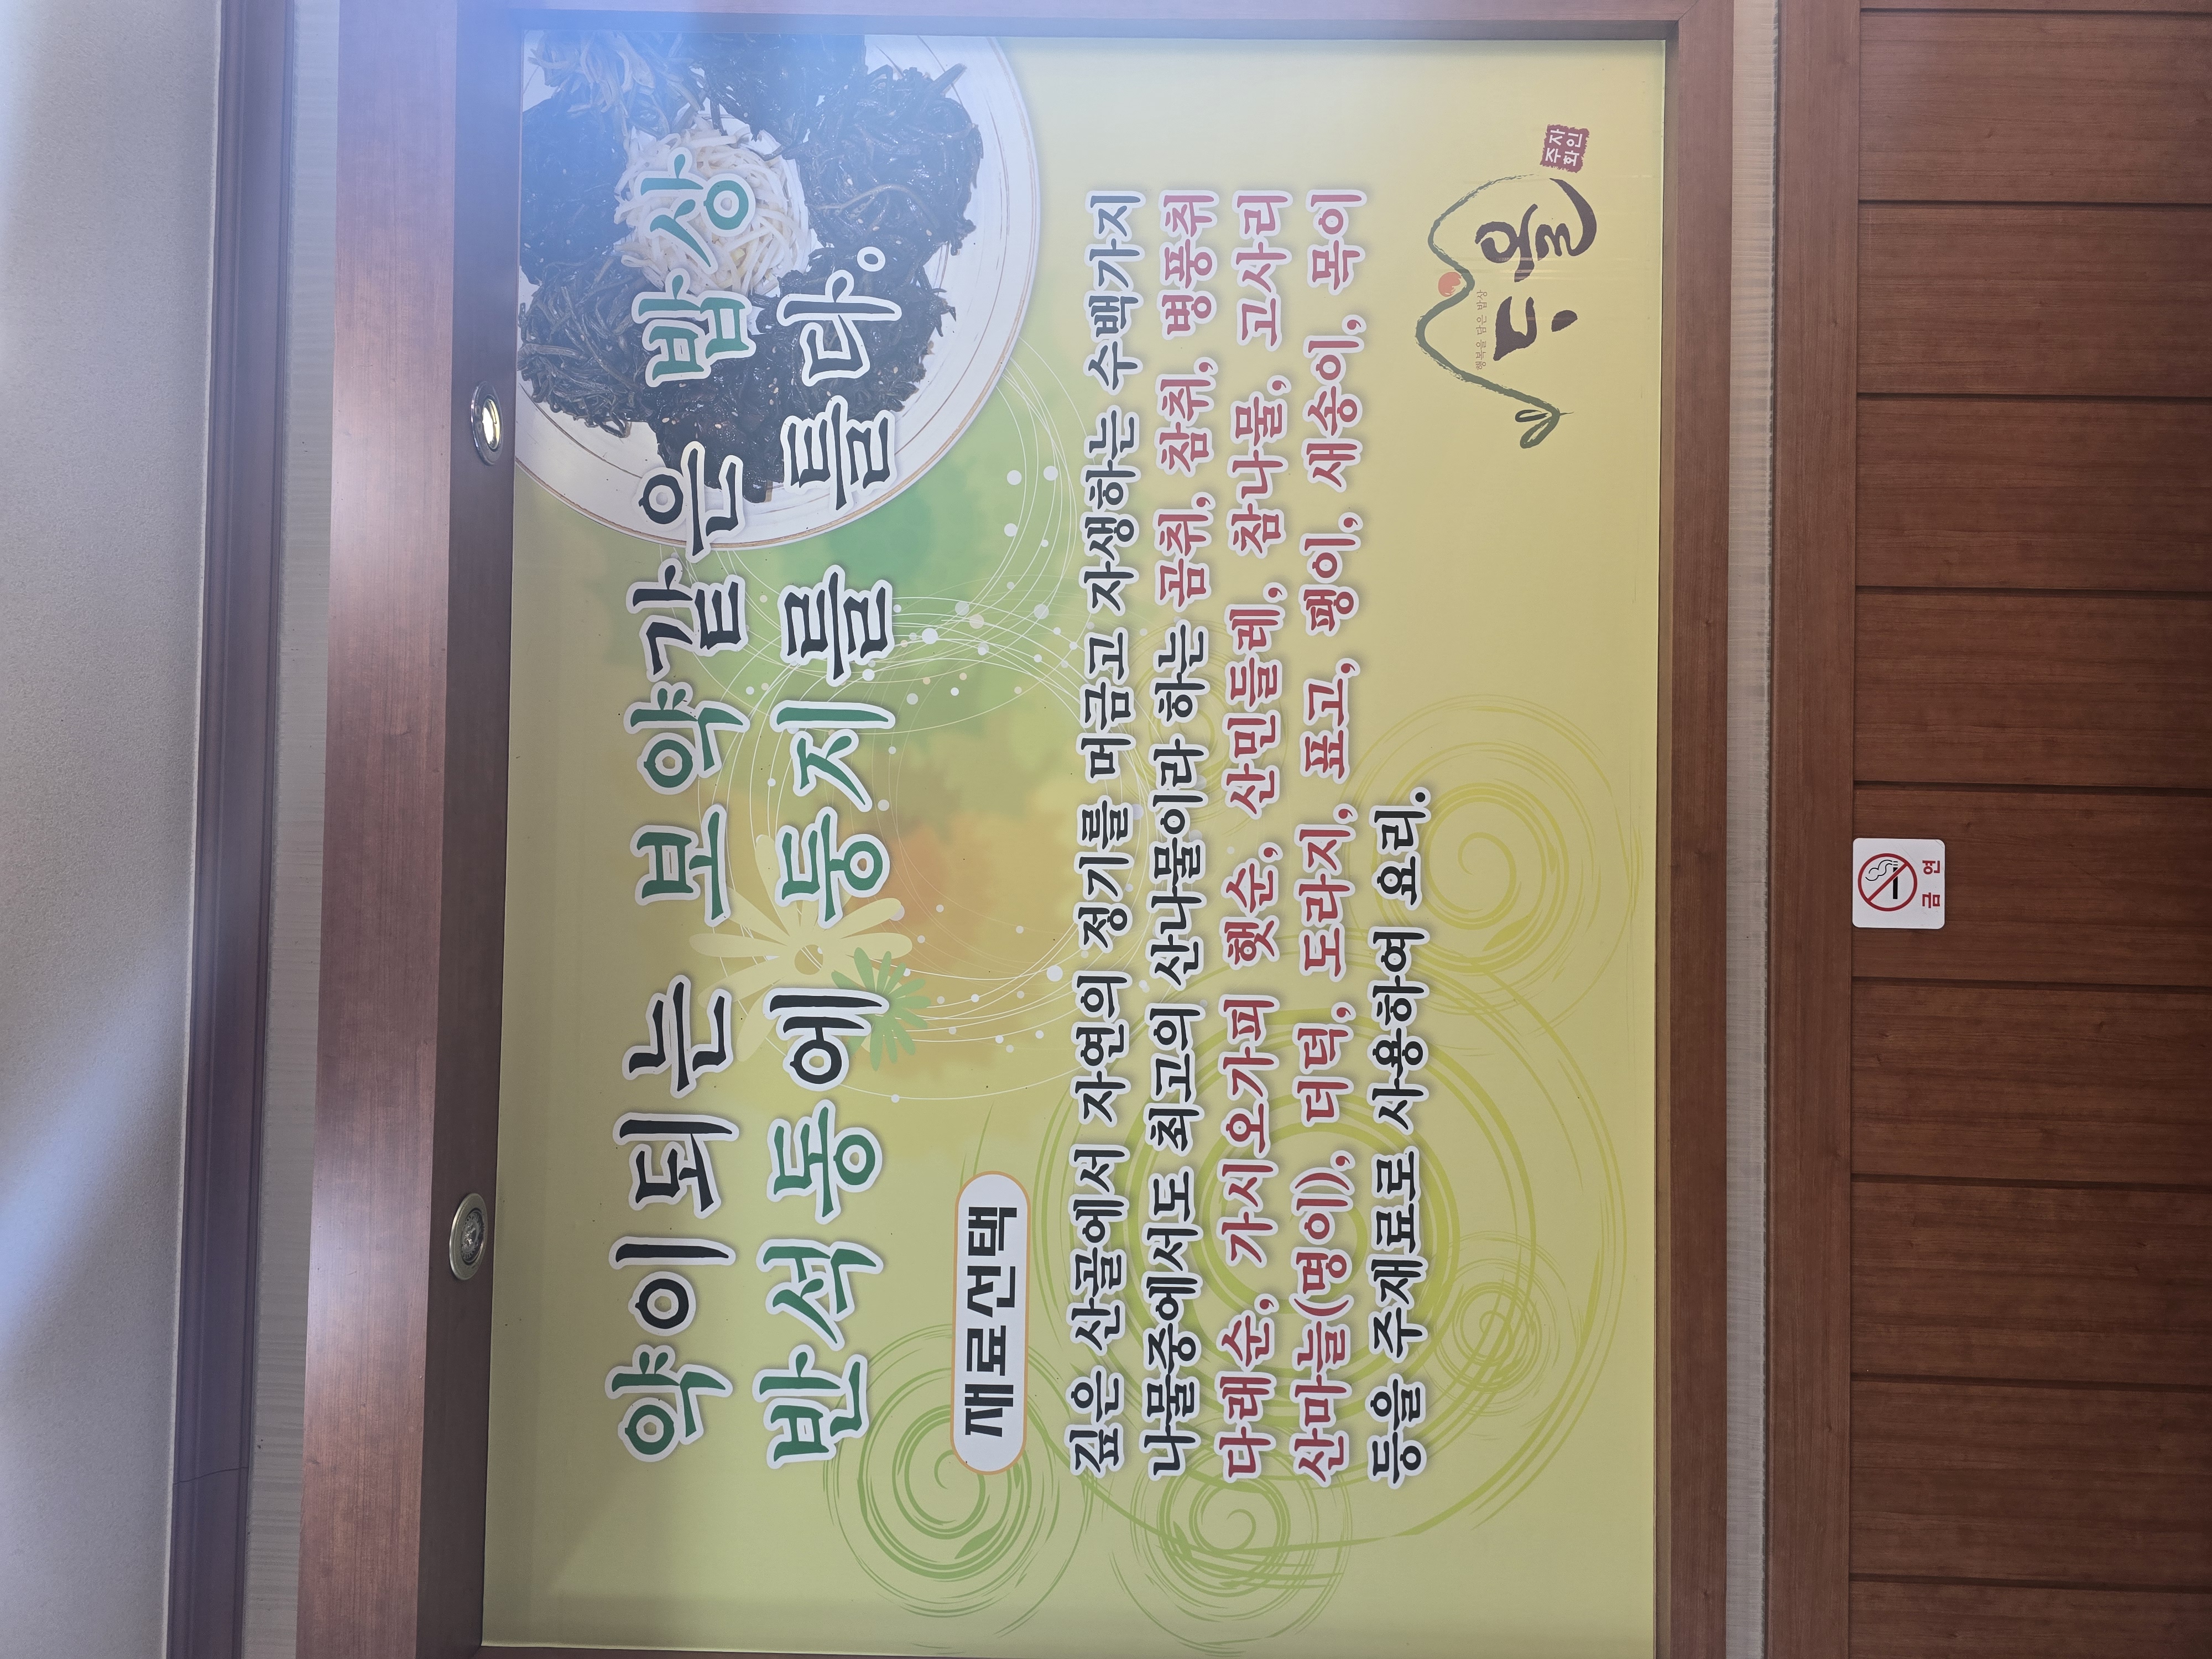 약이되는 보약같은 밥상
반석통에 둥지를 틀다.
재료선택
깊은 산골에서 자연의 정기를 머금고 자생하는 수백가지
나물중에서도 최고의 산나물이라 하는 곰취, 참취, 병풍취
다래순, 가시오가피 햇순, 산민들레, 참나물, 고사리
산마늘(명이), 더덕, 도라지, 표고, 팽이, 새송이, 목이
등을 주재료로 사용하여 요리.
행복을 담은 밥상
뜨올
자연
주화
금연